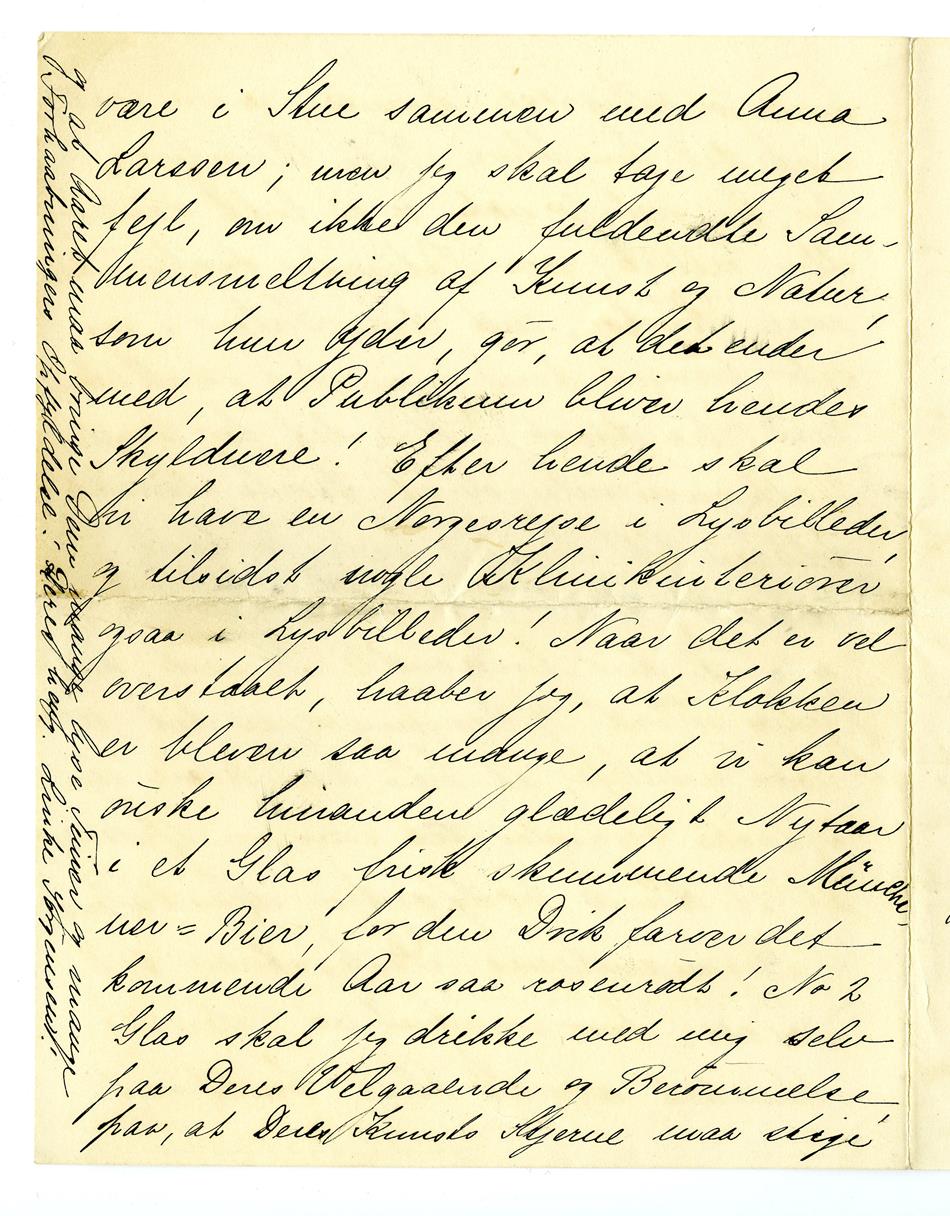 være i Stue sammen med Anna
Larssen; men jeg skal tage meget
fejl, om ikke den fuldendte Sam-
mensmeltning af Kunst og Natur,
som hun yder, gör, at det ender
med, at Publikum bliver hendes
Skyldnere! Efter hende skal
vi have en Norgesrejse i Lysbilleder,
og tilsidst nogle Klinikinteriörer
ogsaa i Lysbilleder! Naar det er vel
overstaaet, haaber jeg, at Klokken
er bleven saa mange, at vi kan
önske hinanden glædeligt Nytaar
i et Glas frisk skummende Münche-
ner=Bier, for den Drik farver det
kommende Aar saa rosenrödt! No 2
Glas skal jeg drikke med mig selv
paa Deres Velgaaende og Berömmelse,
paa, at Deres Kunsts Stjerne maa stige
og at Aaret maa bringe Dem mange lyse Timer og mange
Forhaabningers Opfyldelse! Deres heng. Linke Jörgensen!.